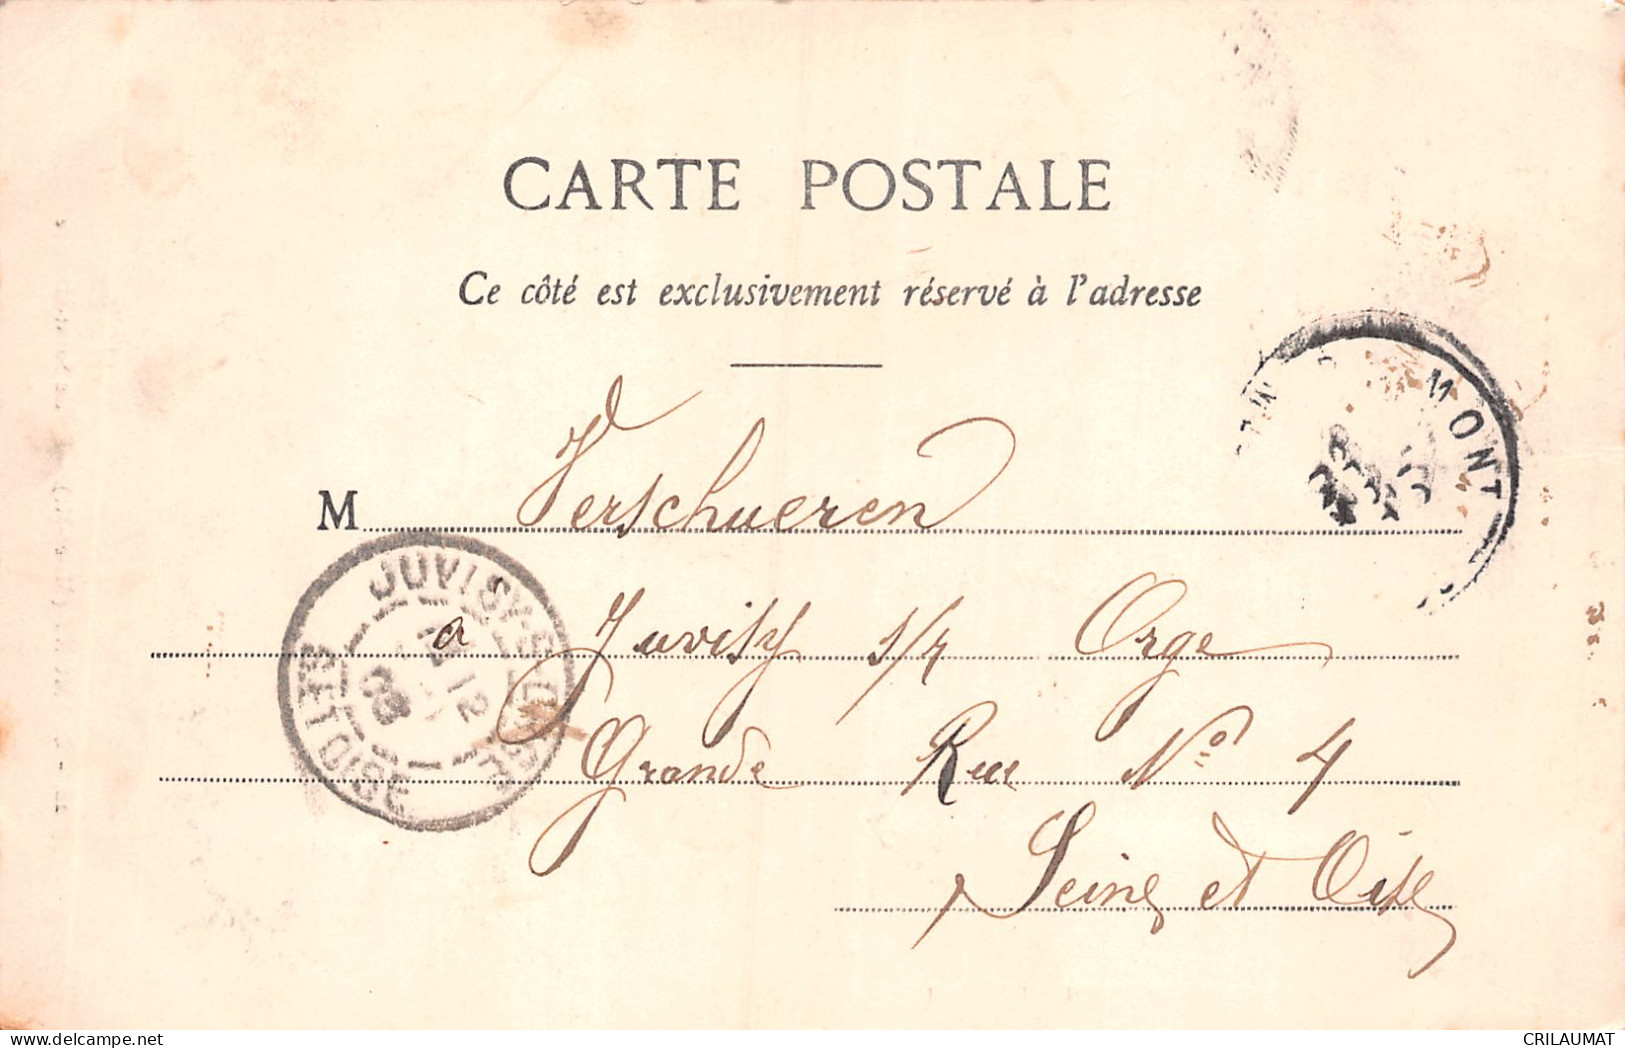 CARTE POSTALE
Ce côté est exclusivement réservé à l'adresse
MONT
M Verschueren
JUVISY-S-ORGE
12
03
SET OISE
a Juvisy s/r Orge
Grande Rue No 4
Seine et Oise
CRILAUMAT